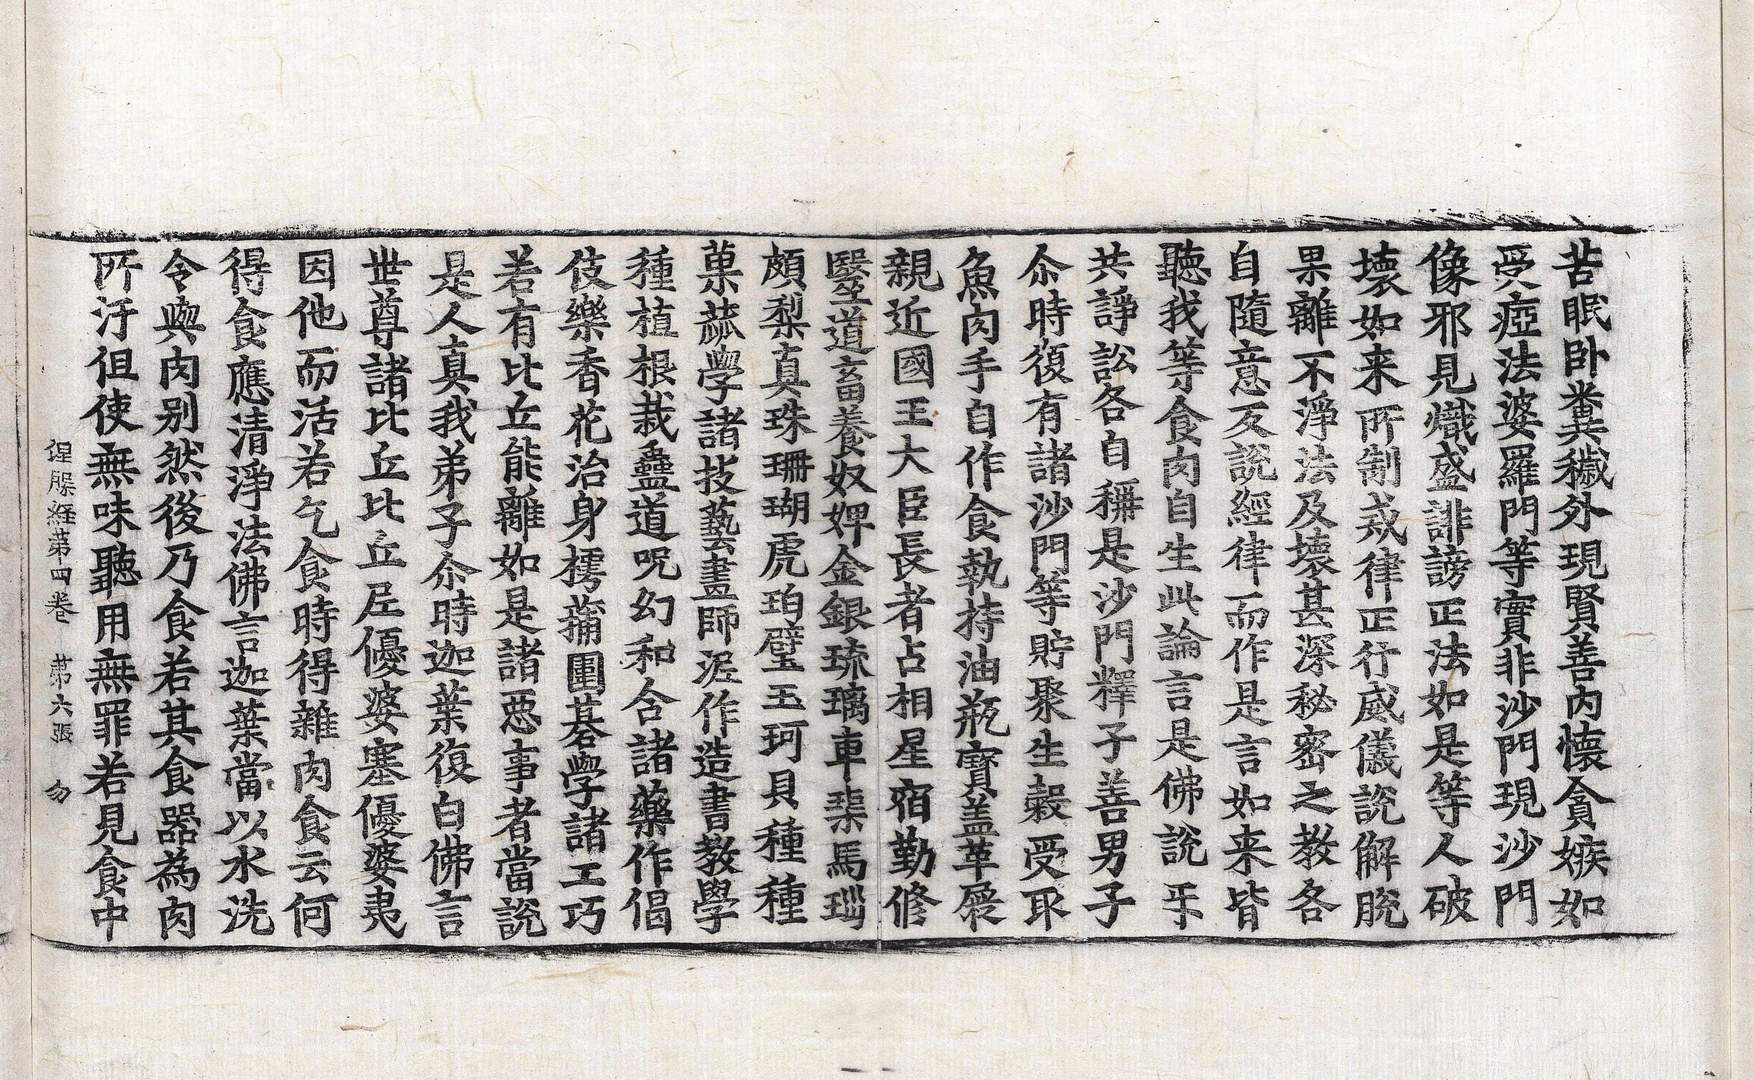 苦眠卧糞穢外現賢善內懷貪嫉如
受瘂法婆羅門等實非沙門現沙門
像邪見熾盛誹謗正法如是等人破
壞如来所制戒律正行威儀說解脫
果離不淨法及壞甚深秘密之教各
自隨意反說經律而作是言如来皆
聽我等食肉自生此論言是佛說乎
共諍訟各自稱是沙門釋子善男子
尒時復有諸沙門等貯聚生穀受取
魚肉手自作食執持油瓶寶盖革屣
親近國王大臣長者占相星宿勤修
毉道畜養奴婢金銀琉璃車璖馬瑙
頗梨真珠珊瑚虎珀璧玉珂貝種種
菓蓏學諸技藝畫師泥作造書教學
種植根栽蠱道呪幻和合諸藥作倡
伎樂香花治身摴蒱圍碁學諸工巧
若有比丘能離如是諸惡事者當說
是人真我弟子尒時迦葉復白佛言
世尊諸比丘比丘尼優婆塞優婆夷
因他而活若乞食時得雜肉食云何
得食應清淨法佛言迦葉當以水洗
令與肉别然後乃食若其食器為肉
所汙但使無味聽用無罪若見食中
涅槃経苐四卷 苐六張 勿